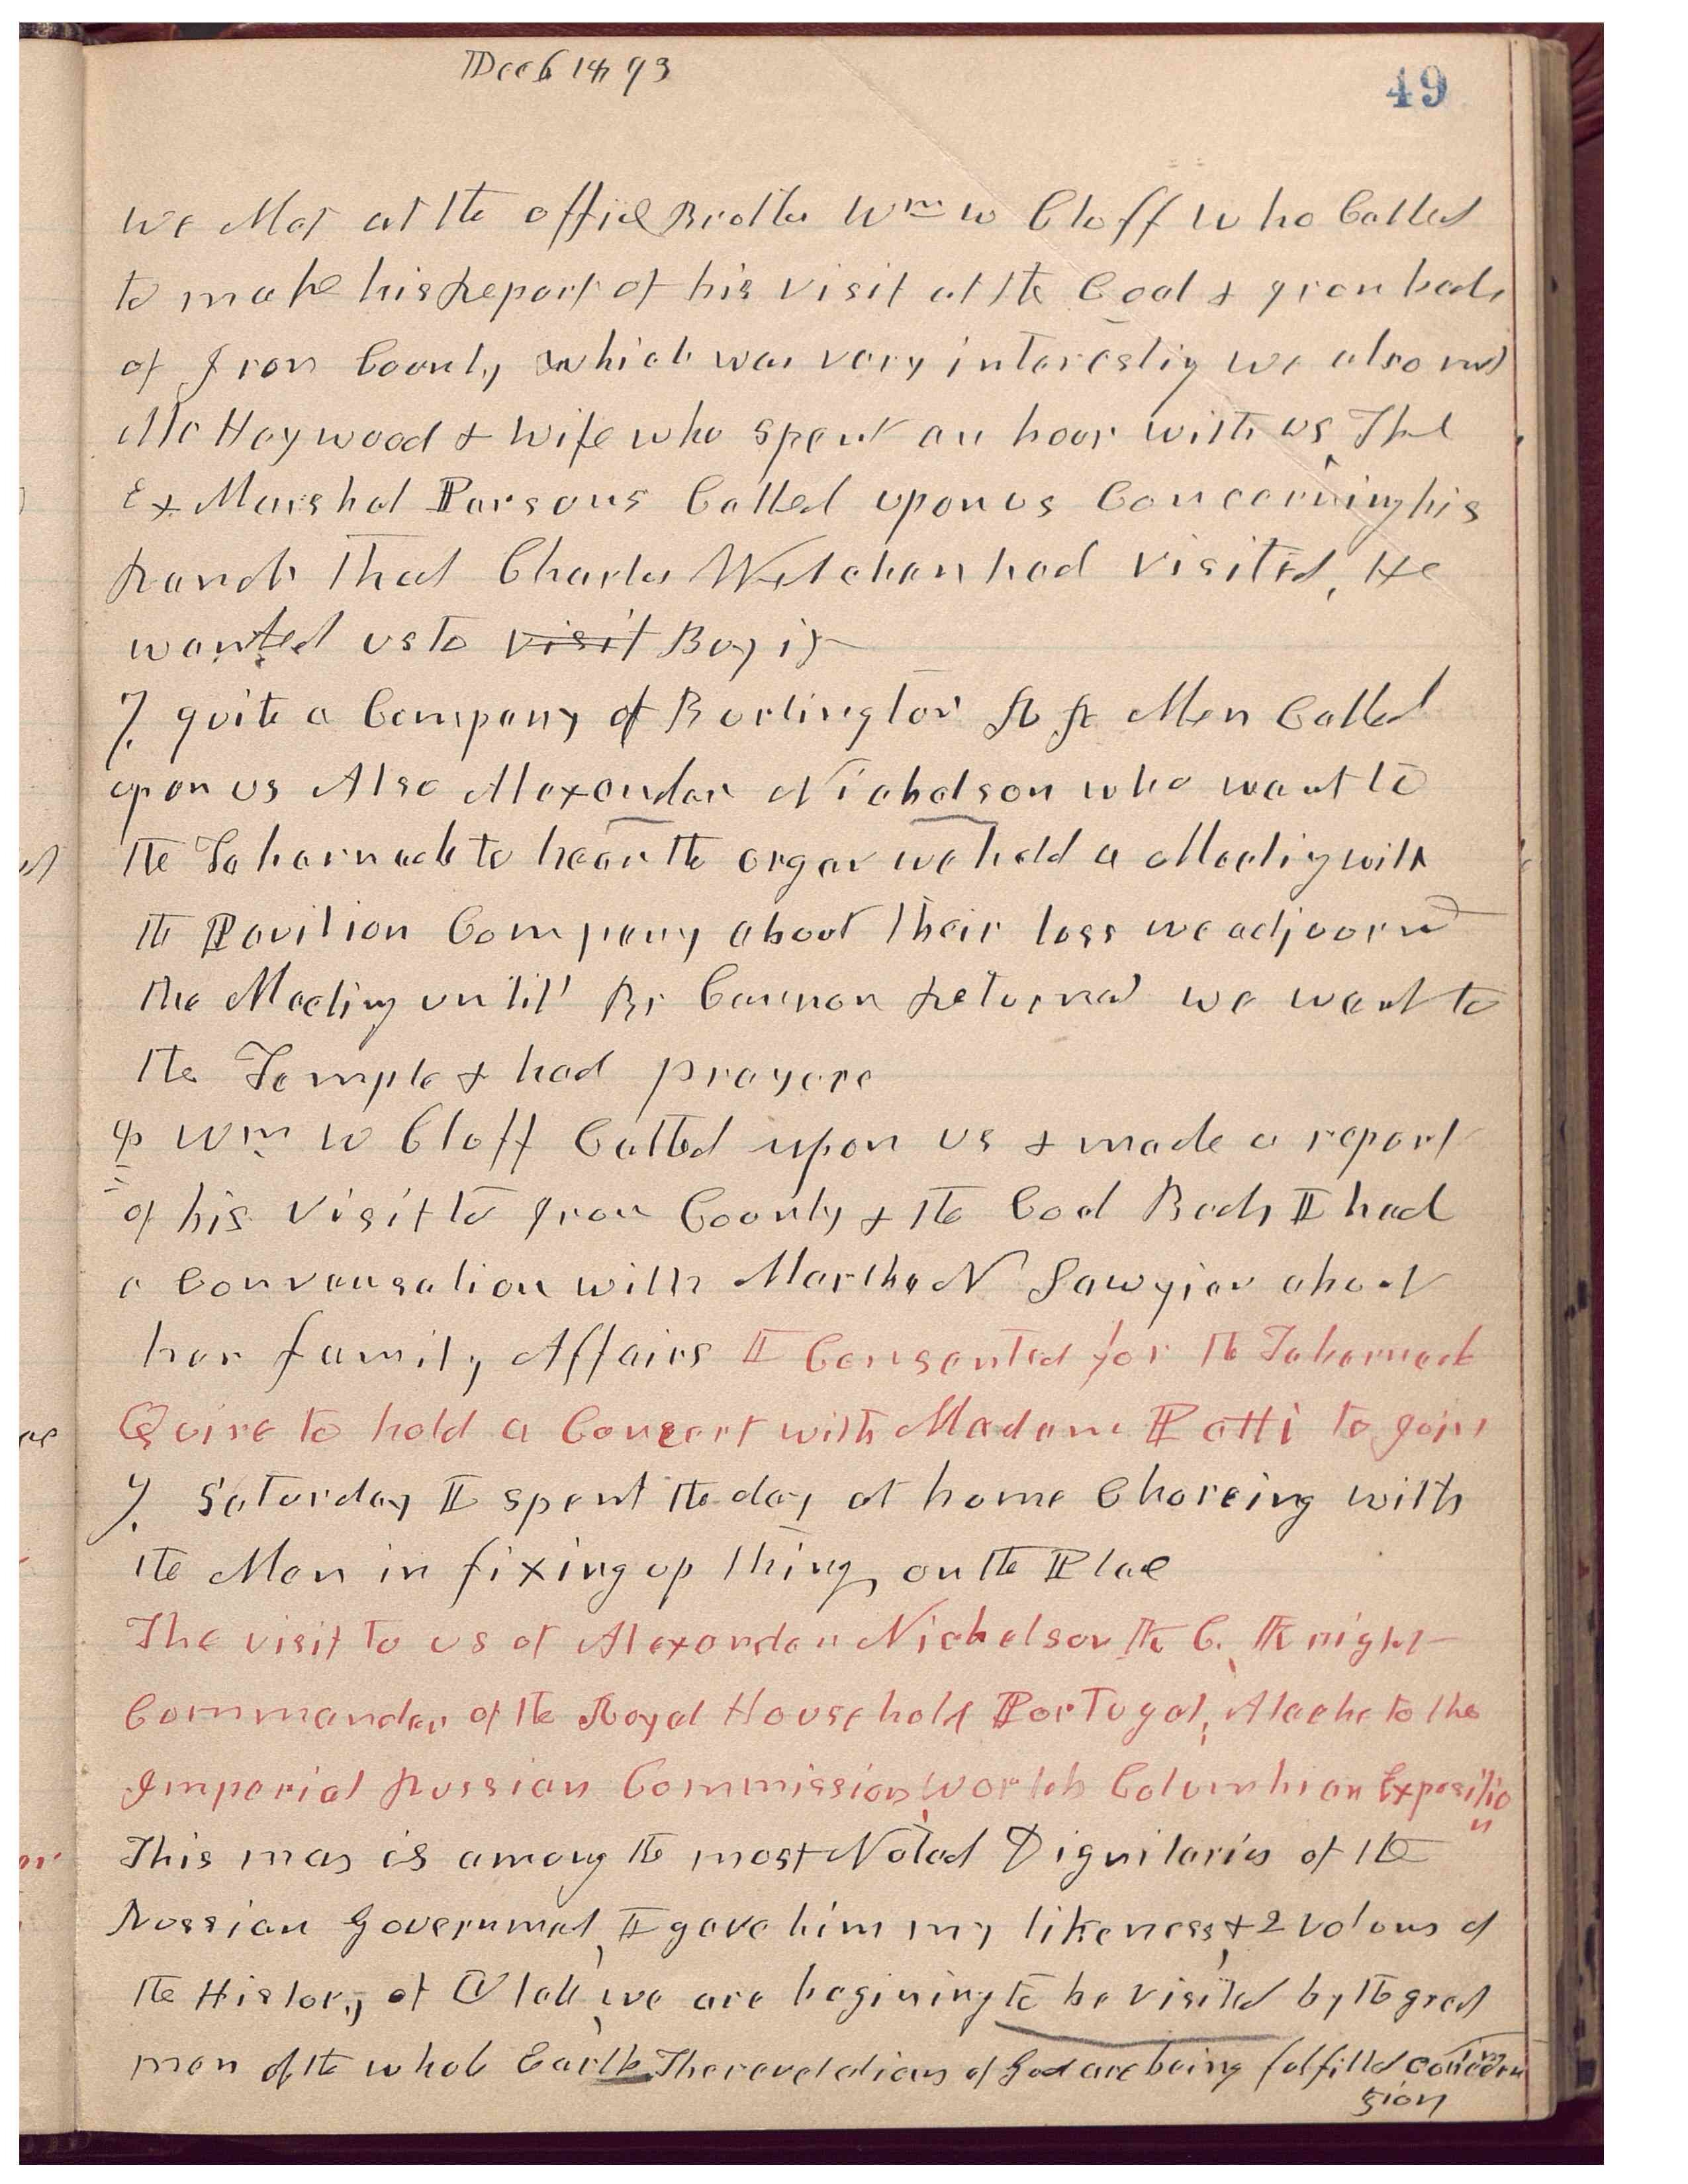 Dec 6 1893
49
we Met at the office Brother Wm W Cluff who Called
to make his Report of his visit at the Coal & Iron beds
of Iron County which was very interesting we also met
Mr Haywood & wife who spent an hour with us The
Ex Marshal Parsons Called upon us Concerning his
Ranch That Charles Welchan had visited, He
wanted us to visit Buy it
7. quite a Company of Burlington RR Men Called
upon us Also Alexander Nicholson who went to
the Tabernacle to hear the organ we held a Meeting with
the Pavilion Company about their loss we adjournd
the Meeting until Br Cannon Returned we went to
the Temple & had prayers
8 Wm W Cluff Called upon us & made a report
of his visit to Iron County & the Coal Beds I had
a Convorsation with Martha N Sawyier about
her family Affairs I Consented for the Tabernacle
Quire to hold a Concert with Madam Patti to join
9. Saturday I spent the day at home Choreing with
the Men in fixing up things on the Place
The visit to us of Alexander Nicholson the C. the night
Commander of the Royal Household Portugal, Atache to the
Imperial Russian Commission, Worlds Columbian Exposition
This man is among the most Noted Dignitaries of the
Russian Governmet, I gave him my likeness, & 2 volums of
the History of Utah, we are begining to be visited by the great
men of the whole Earth The revelations of God are being fulfilled concern
ing
Zion